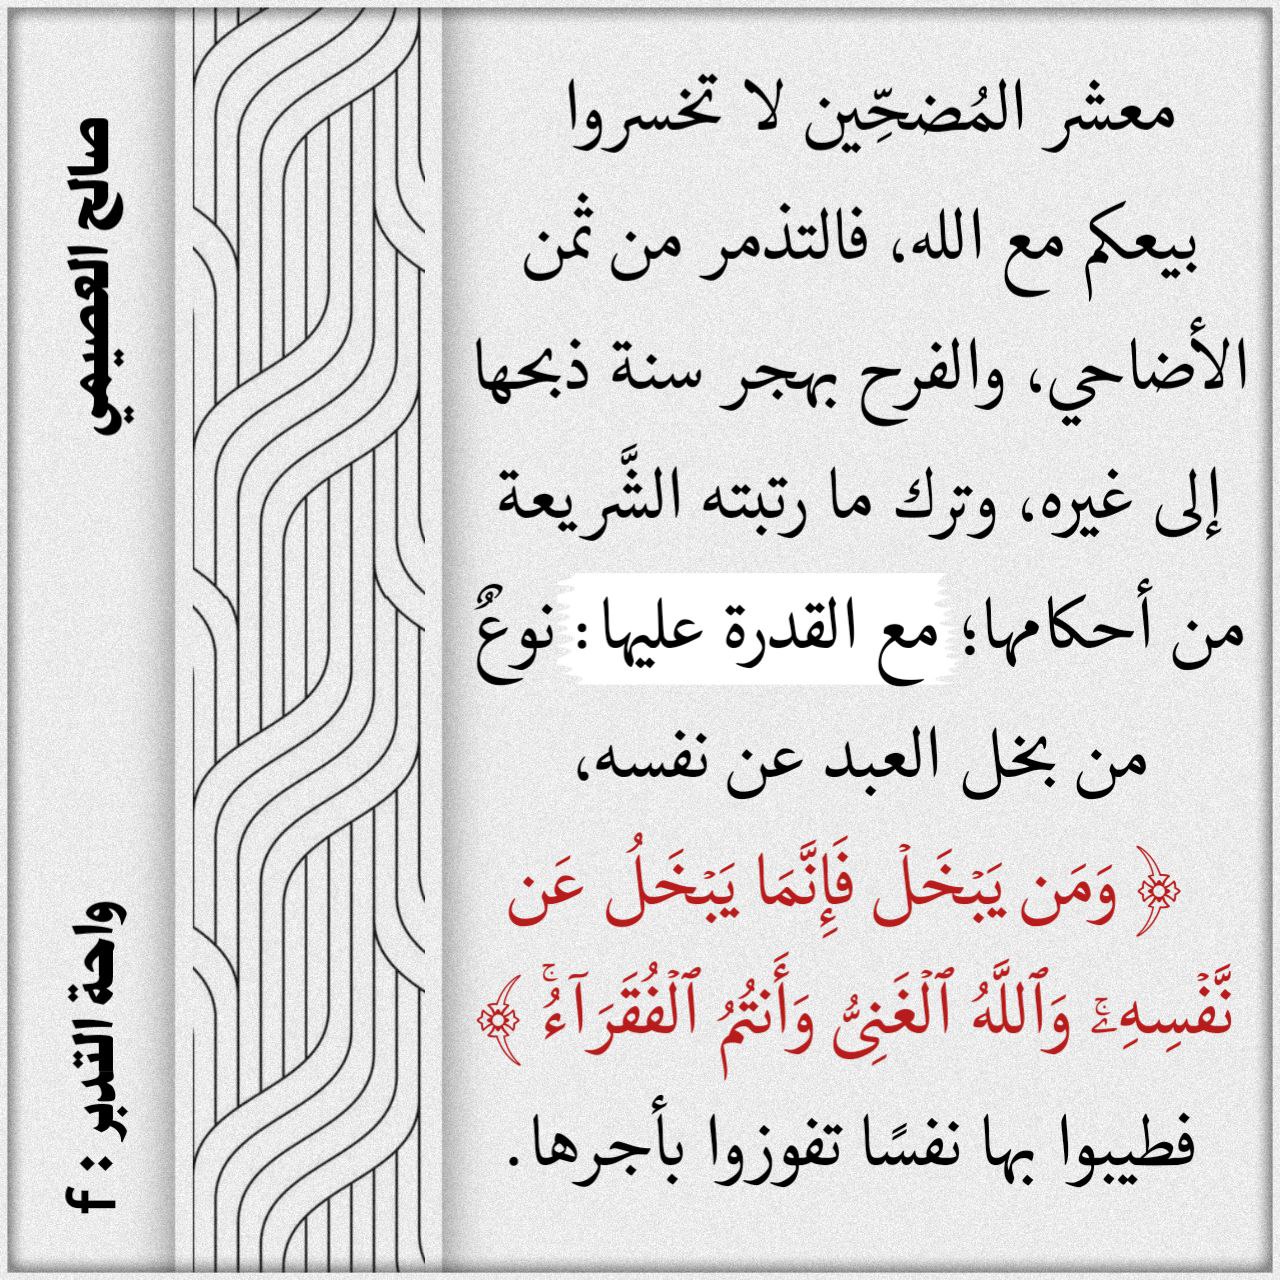 معشر المُضحِّين لا تخسروا
بيعكم مع الله، فالتذمر من ثمن
الأضاحي، والفرح بهجر سنة ذبحها
إلى غيره، وترك ما رتبته الشَّريعة
من أحكامها؛ مع القدرة عليها: نوعٌ
من بخل العبد عن نفسه،
﴿ وَمَن يَبۡخَلۡ فَإِنَّمَا يَبۡخَلُ عَن
نَّفۡسِهِۦۚ وَٱللَّهُ ٱلۡغَنِيُّ وَأَنتُمُ ٱلۡفُقَرَآءُۚ ﴾
فطيبوا بها نفسًا تفوزوا بأجرها.
صالح العصيمي
واحة التدبر : f